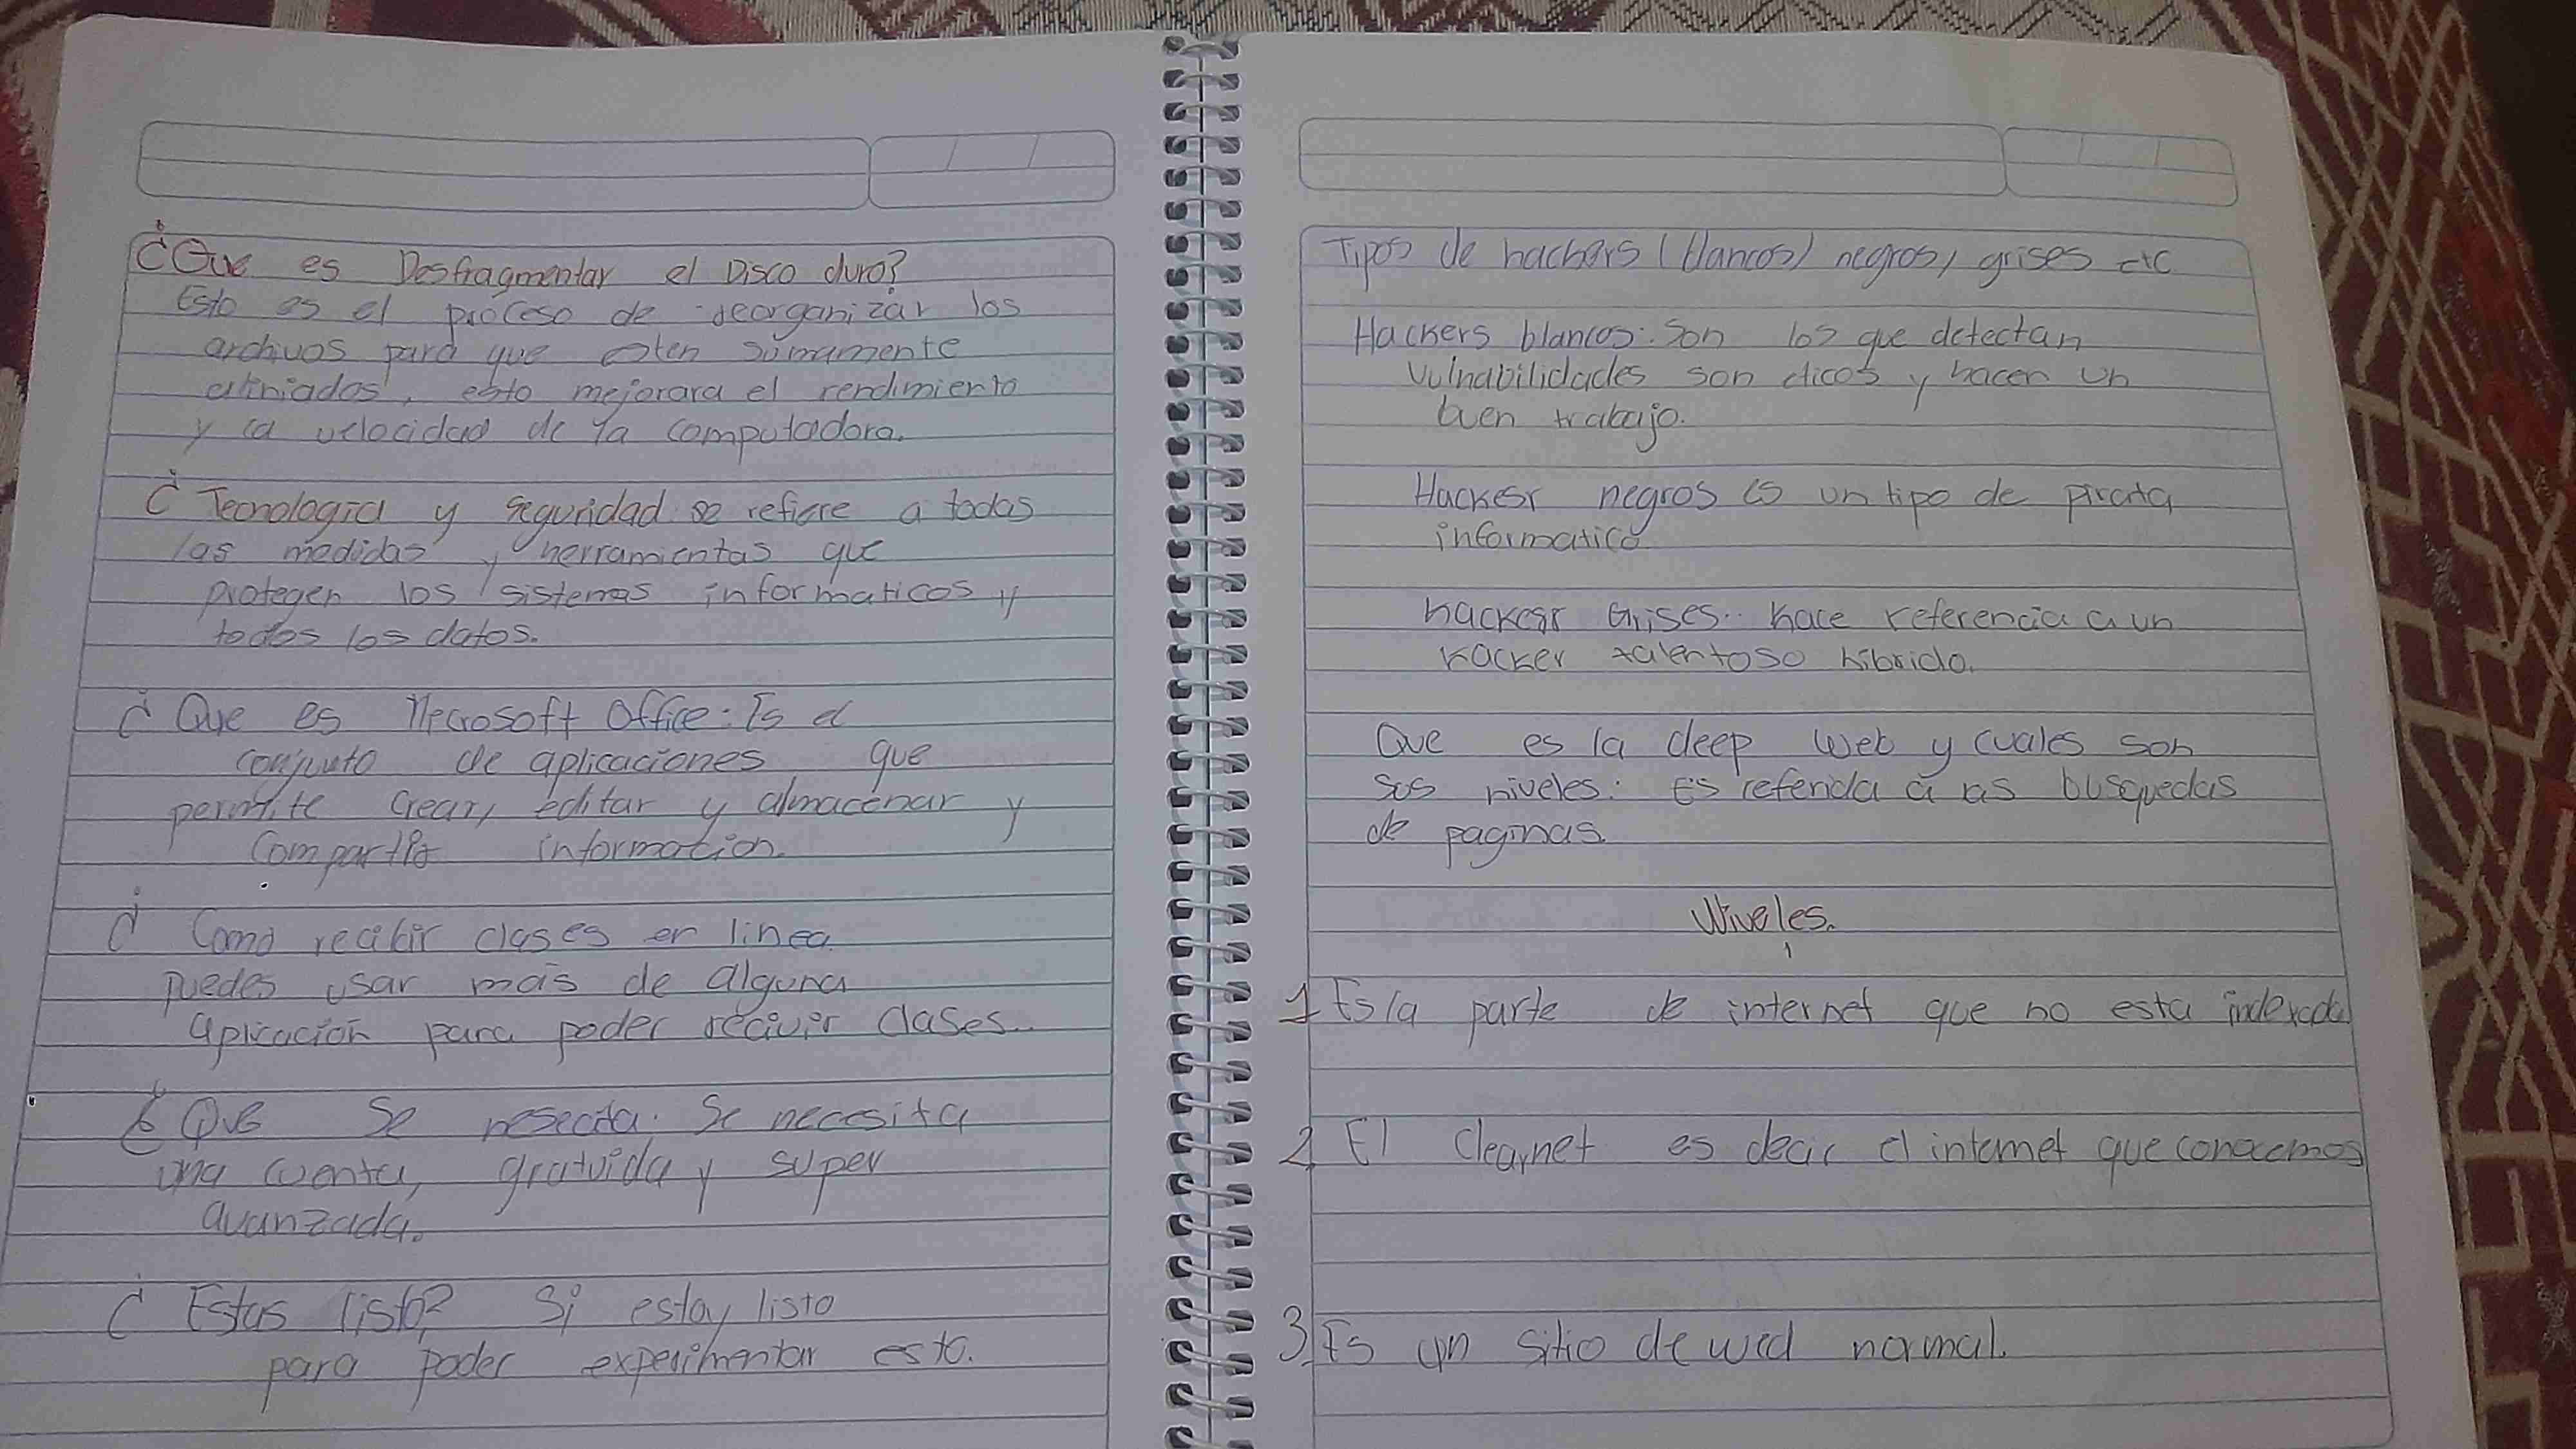 ¿Que es Desfragmentar el Disco duro?
Esto es el proceso de reorganizar los
archivos para que esten sumamente
aliniados, esto mejorara el rendimiento
y la velocidad de la computadora.
¿ Tecnologia y seguridad se refiere a todas
las medidas y herramientas que
protegen los sistemas informaticos y
todos los datos.
¿ Que es Mecrosoft Office: Es el
conjunto de aplicaciones que
permite crear, editar y almacenar y
Compartir información.
¿ Como recibir clases en linea
puedes usar mas de alguna
aplicación para poder recivir clases..
¿ Que se nesecita. Se necesita
una cuenta, gratuida y super
avanzada.
¿ Estas listo? Si estoy listo
para poder experimentar esto.
Tipos de hackers (blancos) negros, grises etc
Hackers blancos: Son los que detectan
Vulnabilidades son eticos y hacen un
buen trabajo.
Hackesr negros es un tipo de pirata
informatico
hackesr Grises.. hace referencia a un
hacker talentoso hibrido.
Que es la deep Web y cuales son
sus niveles: Es referida a as busquedas
de paginas.
Niveles.
1 Es la parte de internet que no esta indexada
2. El Clearnet es decir el internet que conocemos
3. Es un sitio de wed normal.